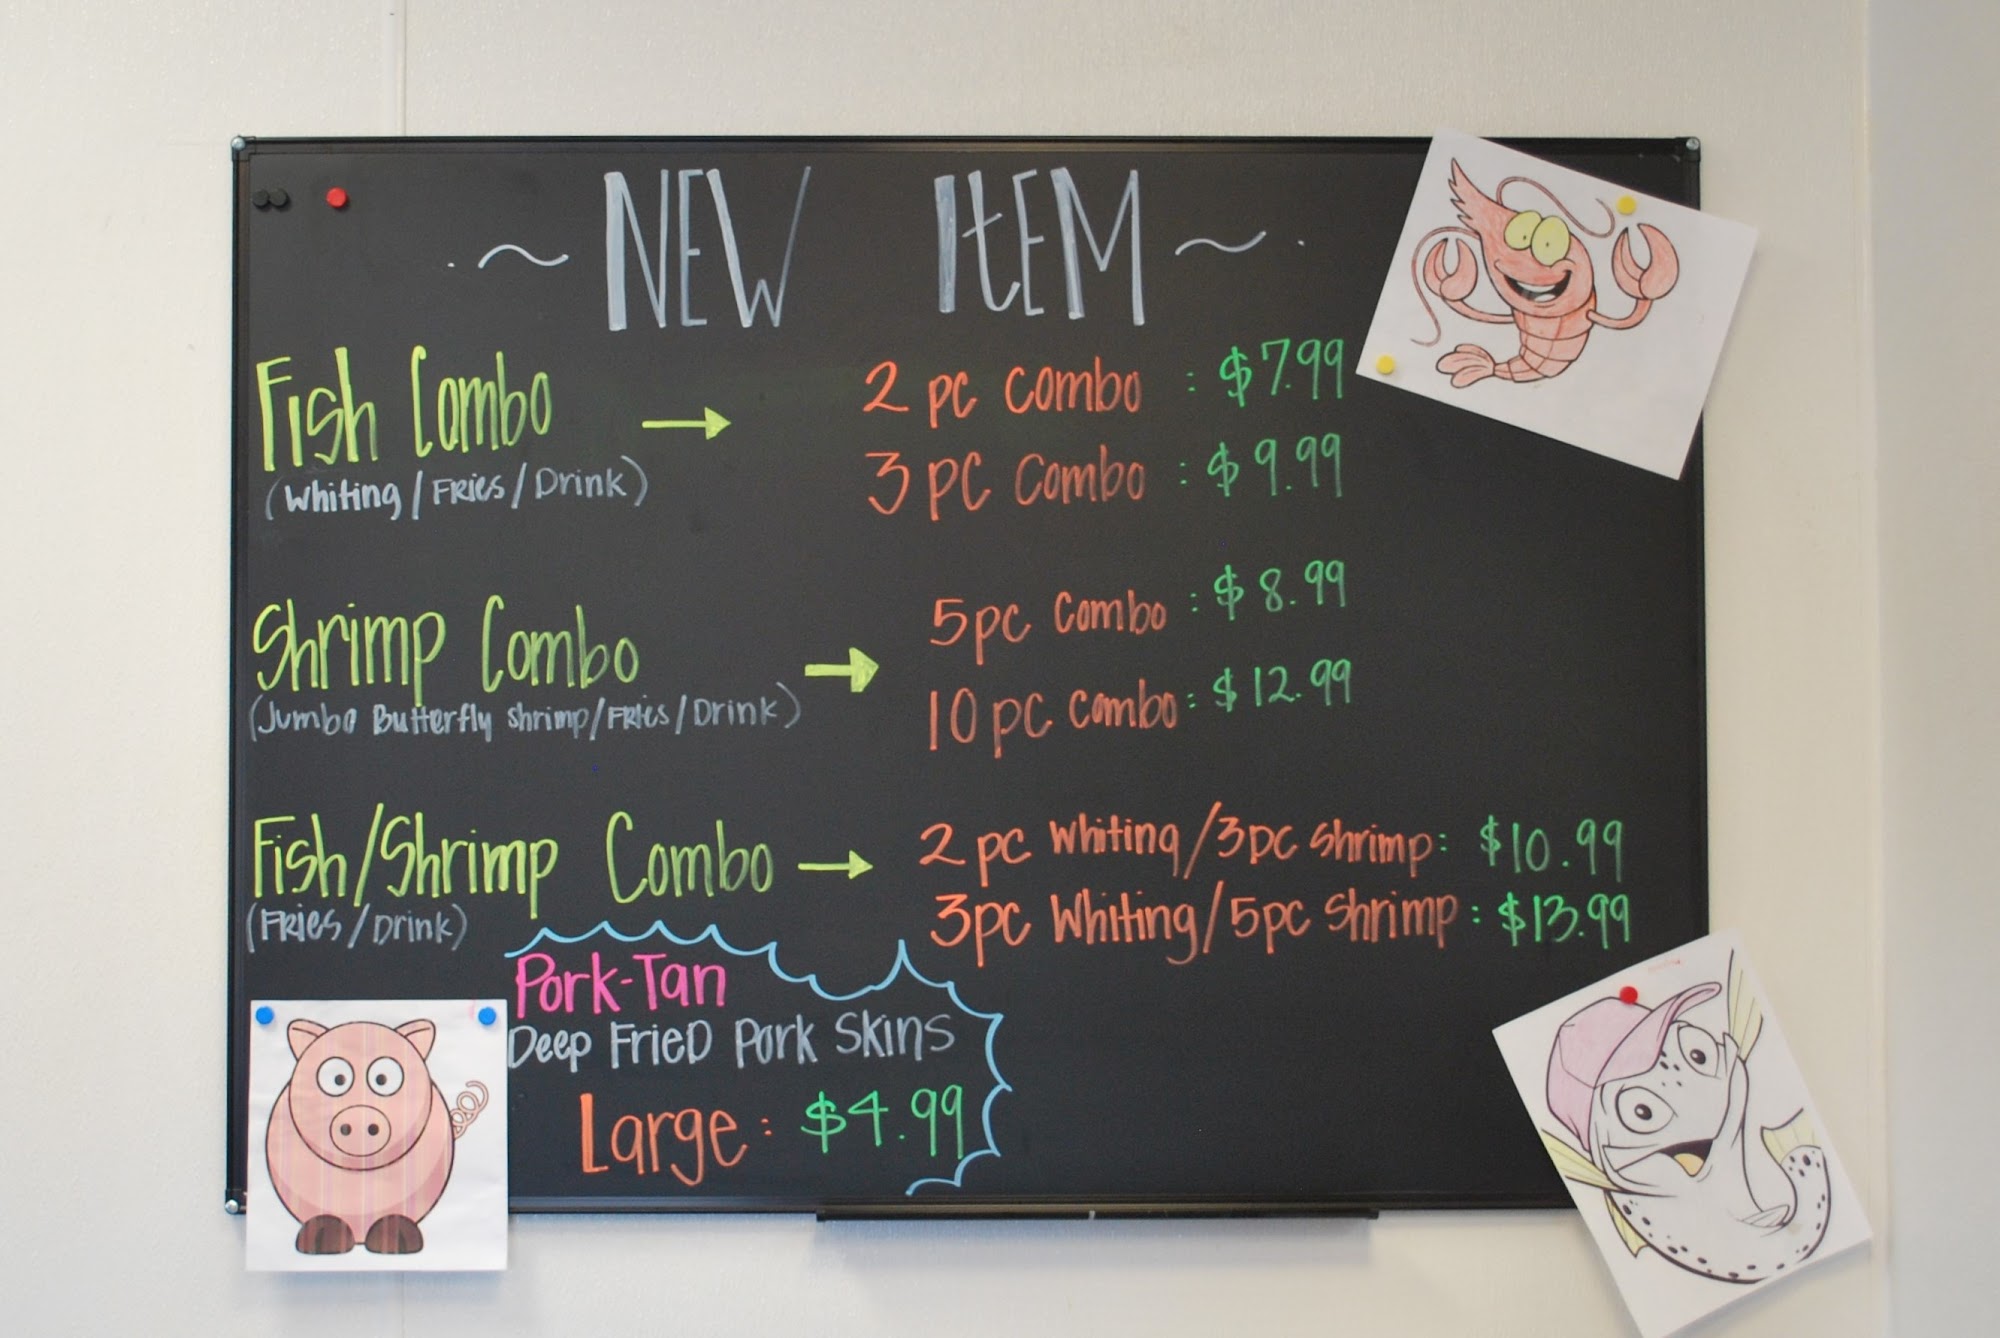 ~ NEW ItEM ~
Fish Combo → 2 pc combo : $7.99
(Whiting/Fries/Drink) 3 pc combo : $9.99
Shrimp Combo → 5pc combo : $8.99
(Jumbo Butterfly shrimp/Fries/Drink) 10 pc combo : $12.99
Fish/Shrimp Combo → 2 pc Whiting/3pc Shrimp: $10.99
(Fries/Drink) 3pc Whiting/5pc Shrimp : $13.99
Pork-Tan
Deep FrieD Pork Skins
Large : $4.99